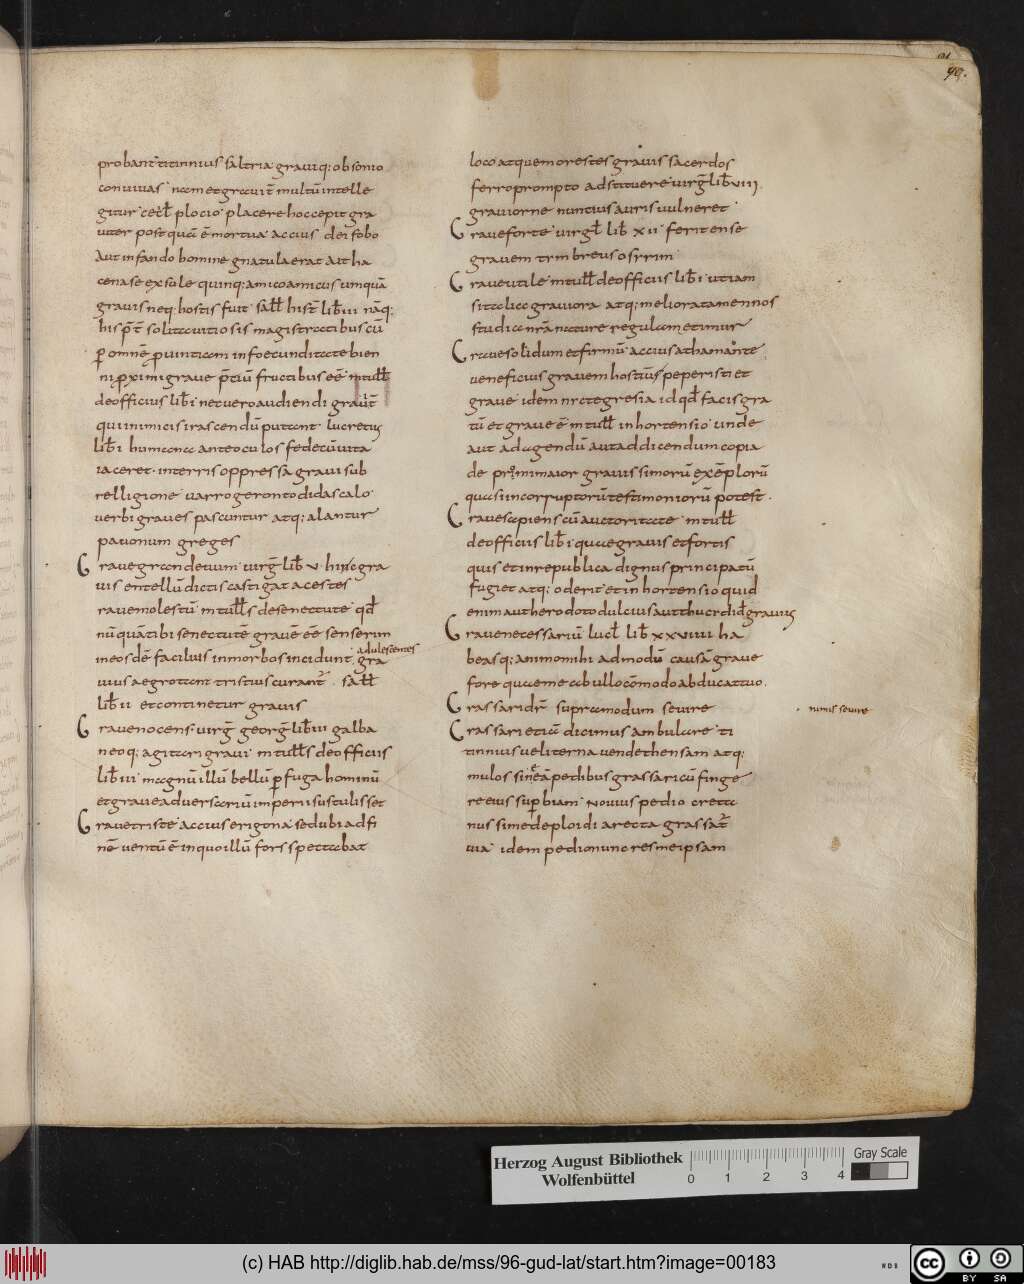 probant titinnius saltria grauiq: obsonio
conuiuas nam et grauit̄ multū intelle
gitur cecil̄ plocio placere hoc cepit gra
uiter post quā ē mortua accius deifobo
Aut infando homine gnatula erat aut ha
cenas e exsole quinq: amico amicus umquā
grauis neq: hostis fuit sall̄ hist̄ lib̄ iii nāq:
his p̄t̄ solita uitiosis magistratibus cū
ꝑ omnē prouintiam infoecunditate bien
ni proximi graue p̄tiū fructibus eē m tull̄
de officiis lib̄ i nec uero audiendi grauit̄
qui inimicis irascendū putant lucretius
lib̄ i humana ante oculos fede cū uita
iaceret in terris oppressa graui sub
relligione uarro gerontodidascalo
uerbi graues pascuntur atq: alantur
pauonum greges
Graue grandeuum uirḡ lib̄ v hinc gra
uis entellū dictis castigat acestes
raue molestū m tull̄s de senectute qd̄
nū quā tibi senectutē grauē eē senserim
in eos dē facilius in morbos incidunt adulescentes gra
uius aegrotant tristius curant̄ sall̄
lib̄ ii et continetur grauis
Graue nocens uirḡ georḡ lib̄ iii galba
neoq: agitari graui m tull̄s de officiis
lib̄ iii magnū illū bellū ꝑfuga hominū
et graue aduersariū imperii sustulisset
Graue triste accius erigona sed ubi ad fi
nē uentū ē in quo illū fors spectabat
loco atque m orestes grauis sacerdos
ferro prompto adstituere uirḡ lib̄ viii
grauiorne nuntius auris uulneret
Graue forte uirgl̄ lib̄ xii ferit ense
grauem tymbreus osyrim
Graue utile m tull̄ de officiis lib̄ i utiam
si ta lice grauiora atq: meliora tamen nos
studia nr̄a nature regula metimur
Graue solidum et firmū accius athamante
ueneficius grauem hostiū s peperisti et
graue idem nyctegresia id qd̄ facis gra
tū et graue ē m tull̄ in hortensio unde
aut ad agendū aut ad dicendum copia
de promi maior grauissimorū exēplorū
quasi incorruptorū testimoniorū potest
Graue sapiens cū auctoritate m tull̄
de officiis lib̄ i quae grauis et fortis
quis et in republica dignus principatū
fugiet atq: oderit et in hortensio quid
enim aut herodoto dulcius aut thucydide grauius
Graue necessariū lucl̄ lib̄ xxviiii ha
beas q: animo mihi admodū causā graue
fore quaeme ab ullo cōmodo abducat tuo
Grassari dr̄ supra modum seuire
nimis seuire
Grassari etiā dicimus ambulare ti
tinnius ueliterna uendet hens am atq:
mulos sinēā pedibus grassari cū finge
re eius suꝑbiam nouius pedio creta
nus simede ploidi arecta grassat̄
uia idem pedio nunc res me ipsam
Herzog August Bibliothek
Wolfenbüttel
0 1 2 3 4
Gray Scale
(c) HAB http://diglib.hab.de/mss/96-gud-lat/start.htm?image=00183
WDB
cc BY SA